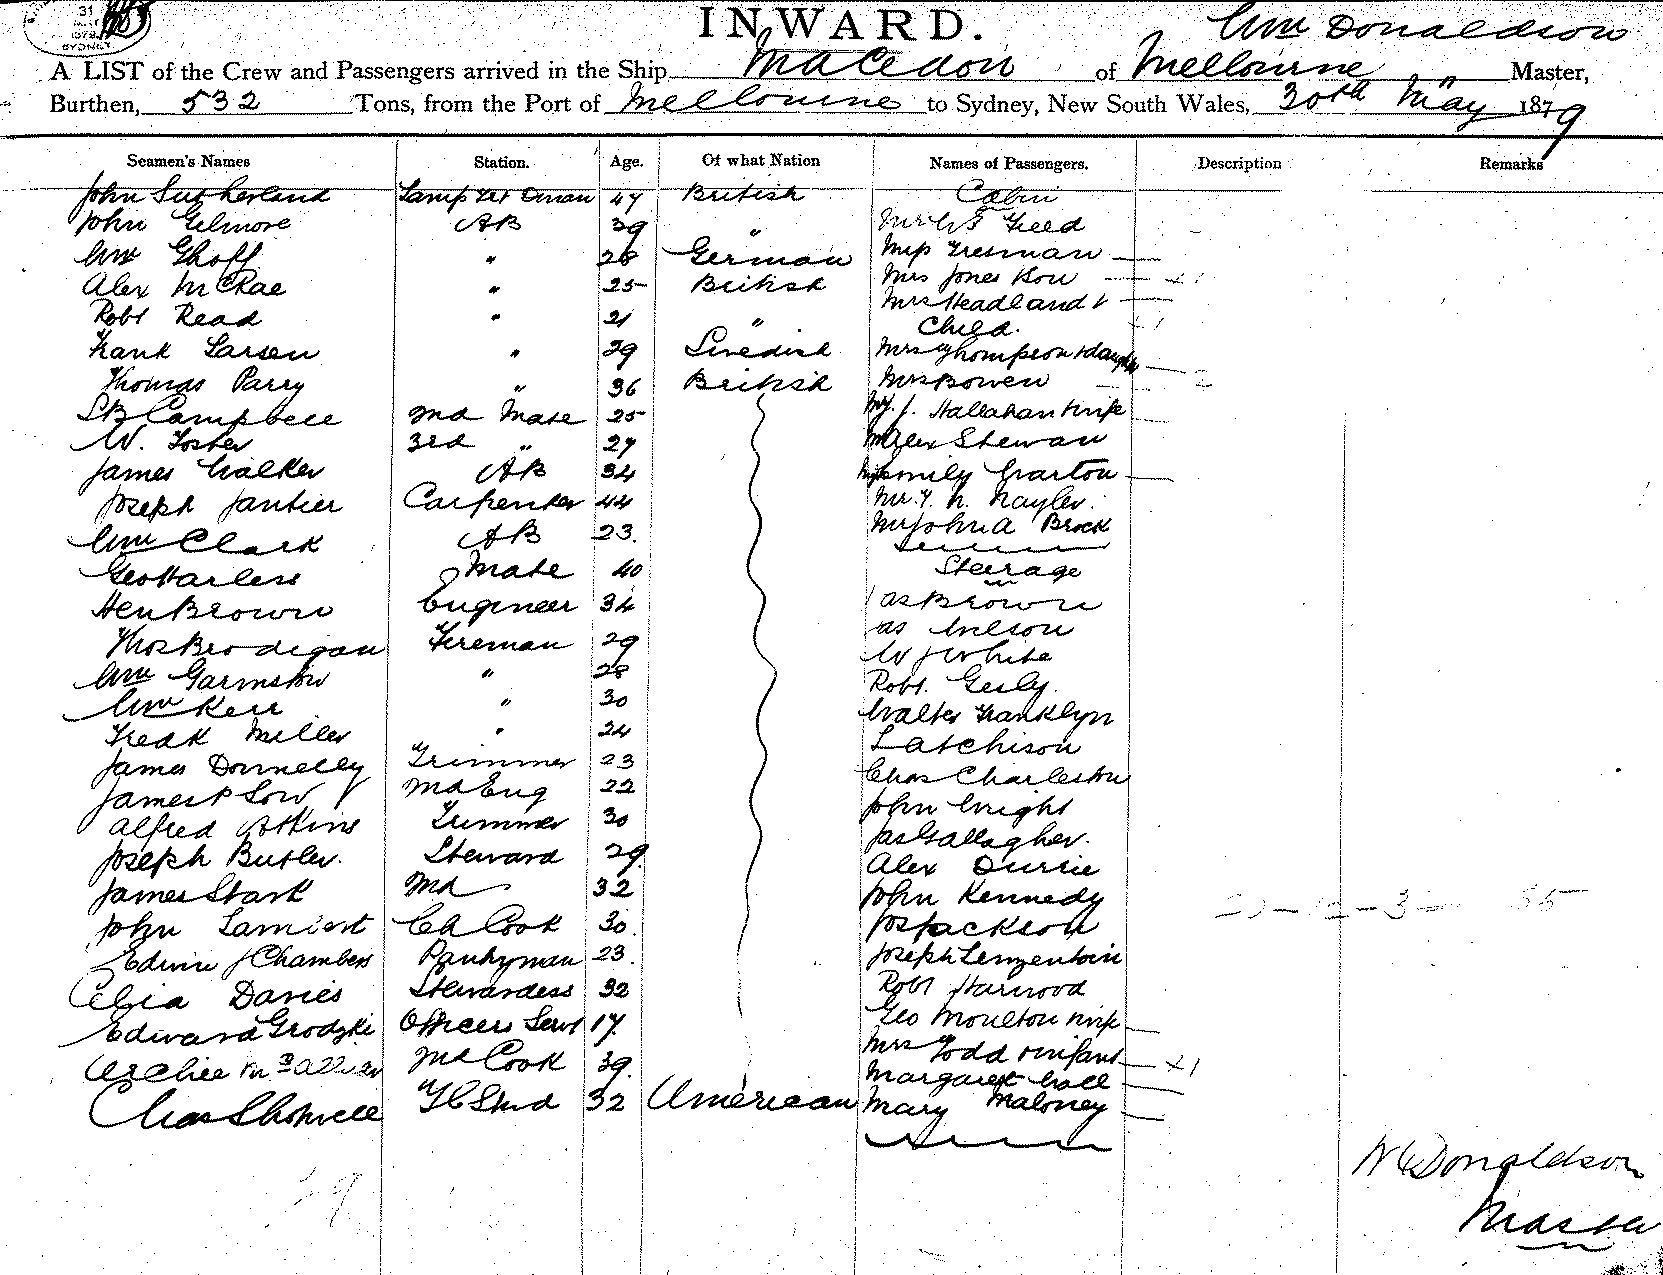 31
SYDNEY
INWARD.
Wm Donaldson
A LIST of the Crew and Passengers arrived in the Ship Macedon of Melbourne Master,
Burthen, 532 Tons, from the Port of Melbourne to Sydney, New South Wales, 30th May 1879
Seamen's Names Station. Age. Of what Nation Names of Passengers. Description Remarks
John Sutherland Lamp 47 British Cabin
John Gilmore AB 39 " Feed
Wm Ghoff " 28 German Miss Freeman
Alex McRae " 25 British Mrs Jones
Robt Read " 21 " Mrs Headland &
Child.
Frank Larsen " 29 Swedish Mrs Thompson & daughter
Thomas Parry " 36 British Mrs Bowen
Campbell 2nd Mate 25 J. Hallahan & wife
W. Foster 3rd " 27 Alex Stewart
James Walker AB 34 Emily Garton
Joseph Carpenter 44 Mr. Naylor.
Wm Clark AB 23. Mr John A Brock
Geo Harless Mate 40 Steerage
Hen Brown Engineer 34 Jas Brown
Thos Brodigan Fireman 29 Jas Wilson
Wm Garmston " 28 W J White
Wm Kerr " 30 Robt.
Fredk Miller " 24 Walter Franklyn
James Donnelly Trimmer 23 L Atchison
James P Low 2nd Eng 22 Chas Charleston
Alfred Trimmer 30 John Wright
Joseph Butler. Steward 29 Jas Gallagher.
James Stark 2nd 32 Alex Durrie
John Ch Cook 30. John Kennedy
Edwin J Chambers Pantryman 23. Jos Jackson
Celia Davies Stewardess 32 Joseph
Edward Officers Servt 17. Robt Harwood
Archie 2nd Cook 39. Geo Moulton & wife
Chas 32 American Mrs Todd & infant
Margaret
Mary Maloney
29
W Donaldson
Master